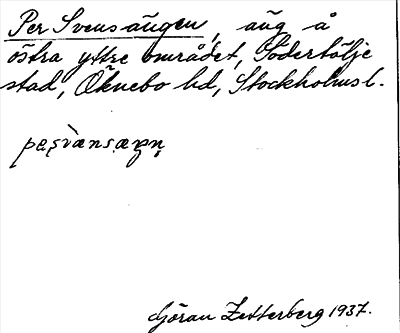 Per Svensängen, äng å
östra yttre området, Södertälje
stad, Öknebo hd, Stockholms l.
Göran Zetterberg 1937.